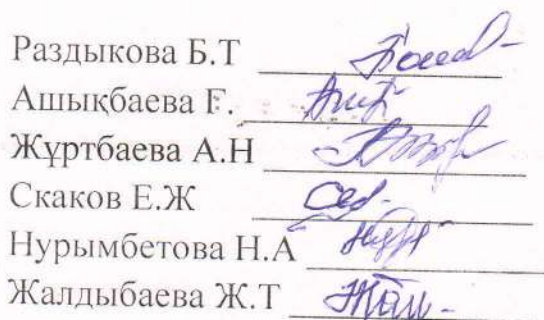 Раздыкова Б.Т
Ашықбаева Г.
Жұртбаева А.Н
Скаков Е.Ж
Нурымбетова Н.А
Жалдыбаева Ж.Т